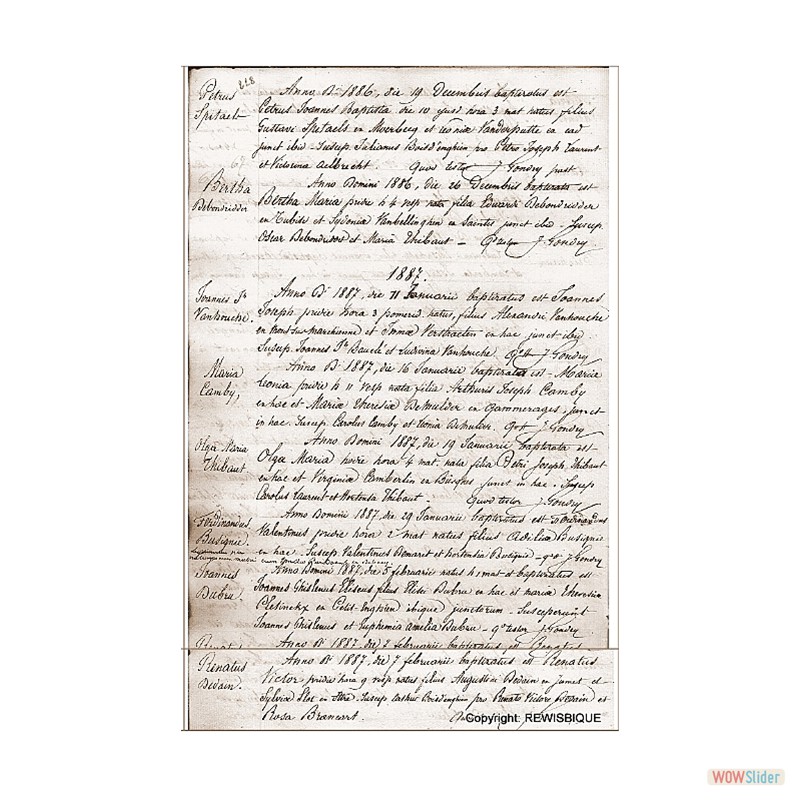 Petrus 828
Spitaels
Anno Dⁿⁱ 1886, die 19 Decembris baptizatus est
Petrus Joannes Baptista die 10 ejusd hora 3 mat natus, filius
Gustavi Spitaels in Moerbeeg et Leoniæ Vanderputte ex ead
junct ibid - Suscep Julianus Broid'enghien pro Petro Joseph Laurent
et Victorina Aelbrecht. Quod testor J Gondry past.
Bertha
Debondridder
Anno Domini 1886, die 26 Decembris baptizata est
Bertha Maria pridie h 4 vesp nata filia Eduardi Debondridder
ex Tubise et Sydonia Vanbellinghen ex Saintes junct ibid - Suscep.
Oscar Debondridder et Maria Thibaut - Qd testor J Gondry.
1887.
Joannes Jh
Vankouche.
Anno Dⁿⁱ 1887, die 11 Januarii baptizatus est Joannes
Joseph pridie hora 3 pomerid. natus, filius Alexandri Vankouche
ex Mont sur Marchienne et Annæ Verstraeten ex hac junct ibid
Suscep. Joannes Jh Bauclé et Ludivina Vankouche. J Gondry
Maria
Camby,
Anno Dⁿⁱ 1887, die 16 Januarii baptizata est - Maria
Leonia pridie h 11 vesp nata filia Arthuris Joseph Camby
ex hac et Mariæ Theresiæ Demulder ex Gammerages - junct
in hac. Suscep Carolus Camby et Leonia Demulder. J Gondry
Olga Maria
Thibaut
Anno Domini 1887, die 19 Januarii baptizata est
Olga Maria hora 4 mat. nata filia Petri Joseph Thibaut
ex hac et Virginiæ Camberlin ex junct in hac. Suscep
Carolus Laurent et Hortensia Thibaut. Quod testor J Gondry
Ferdinandus
Busignie.
Anno Domini 1887, die 29 Januarii baptizatus est Ferdinandus
Valentinus pridie hora 2 mat natus filius Adiliæ Busignie
ex hac. Suscep Valentinus Demaret et Hortensia Busignie - J Gondry
Joannes
Dubru.
Anno Domini 1887, die 5 februarii natus h mat et baptizatus est
Joannes Ghislenus Eliseus filius Elisei Dubru ex hac et Maria Theresia
Pletinckx ex Petit Enghien ibique junctorum - Susceperunt
Joannes Ghislenus et Euphemia Amelia Dubru - qd testor J Gondry
Renatus
Anno Dⁿⁱ 1887, die 7 februarii baptizatus est Renatus
Renatus
Devain.
Anno Dⁿⁱ 1887, die 7 februarii baptizatus est Renatus
Victor pridie hora 9 vesp natus filius Augustini Devain ex et
Sylviæ ex Ittre. Suscep. Arthur Broid'enghien pro Renato Victore Devain et
Rosa Brancart.
Copyright: REWISBIQUE
WOWSlider